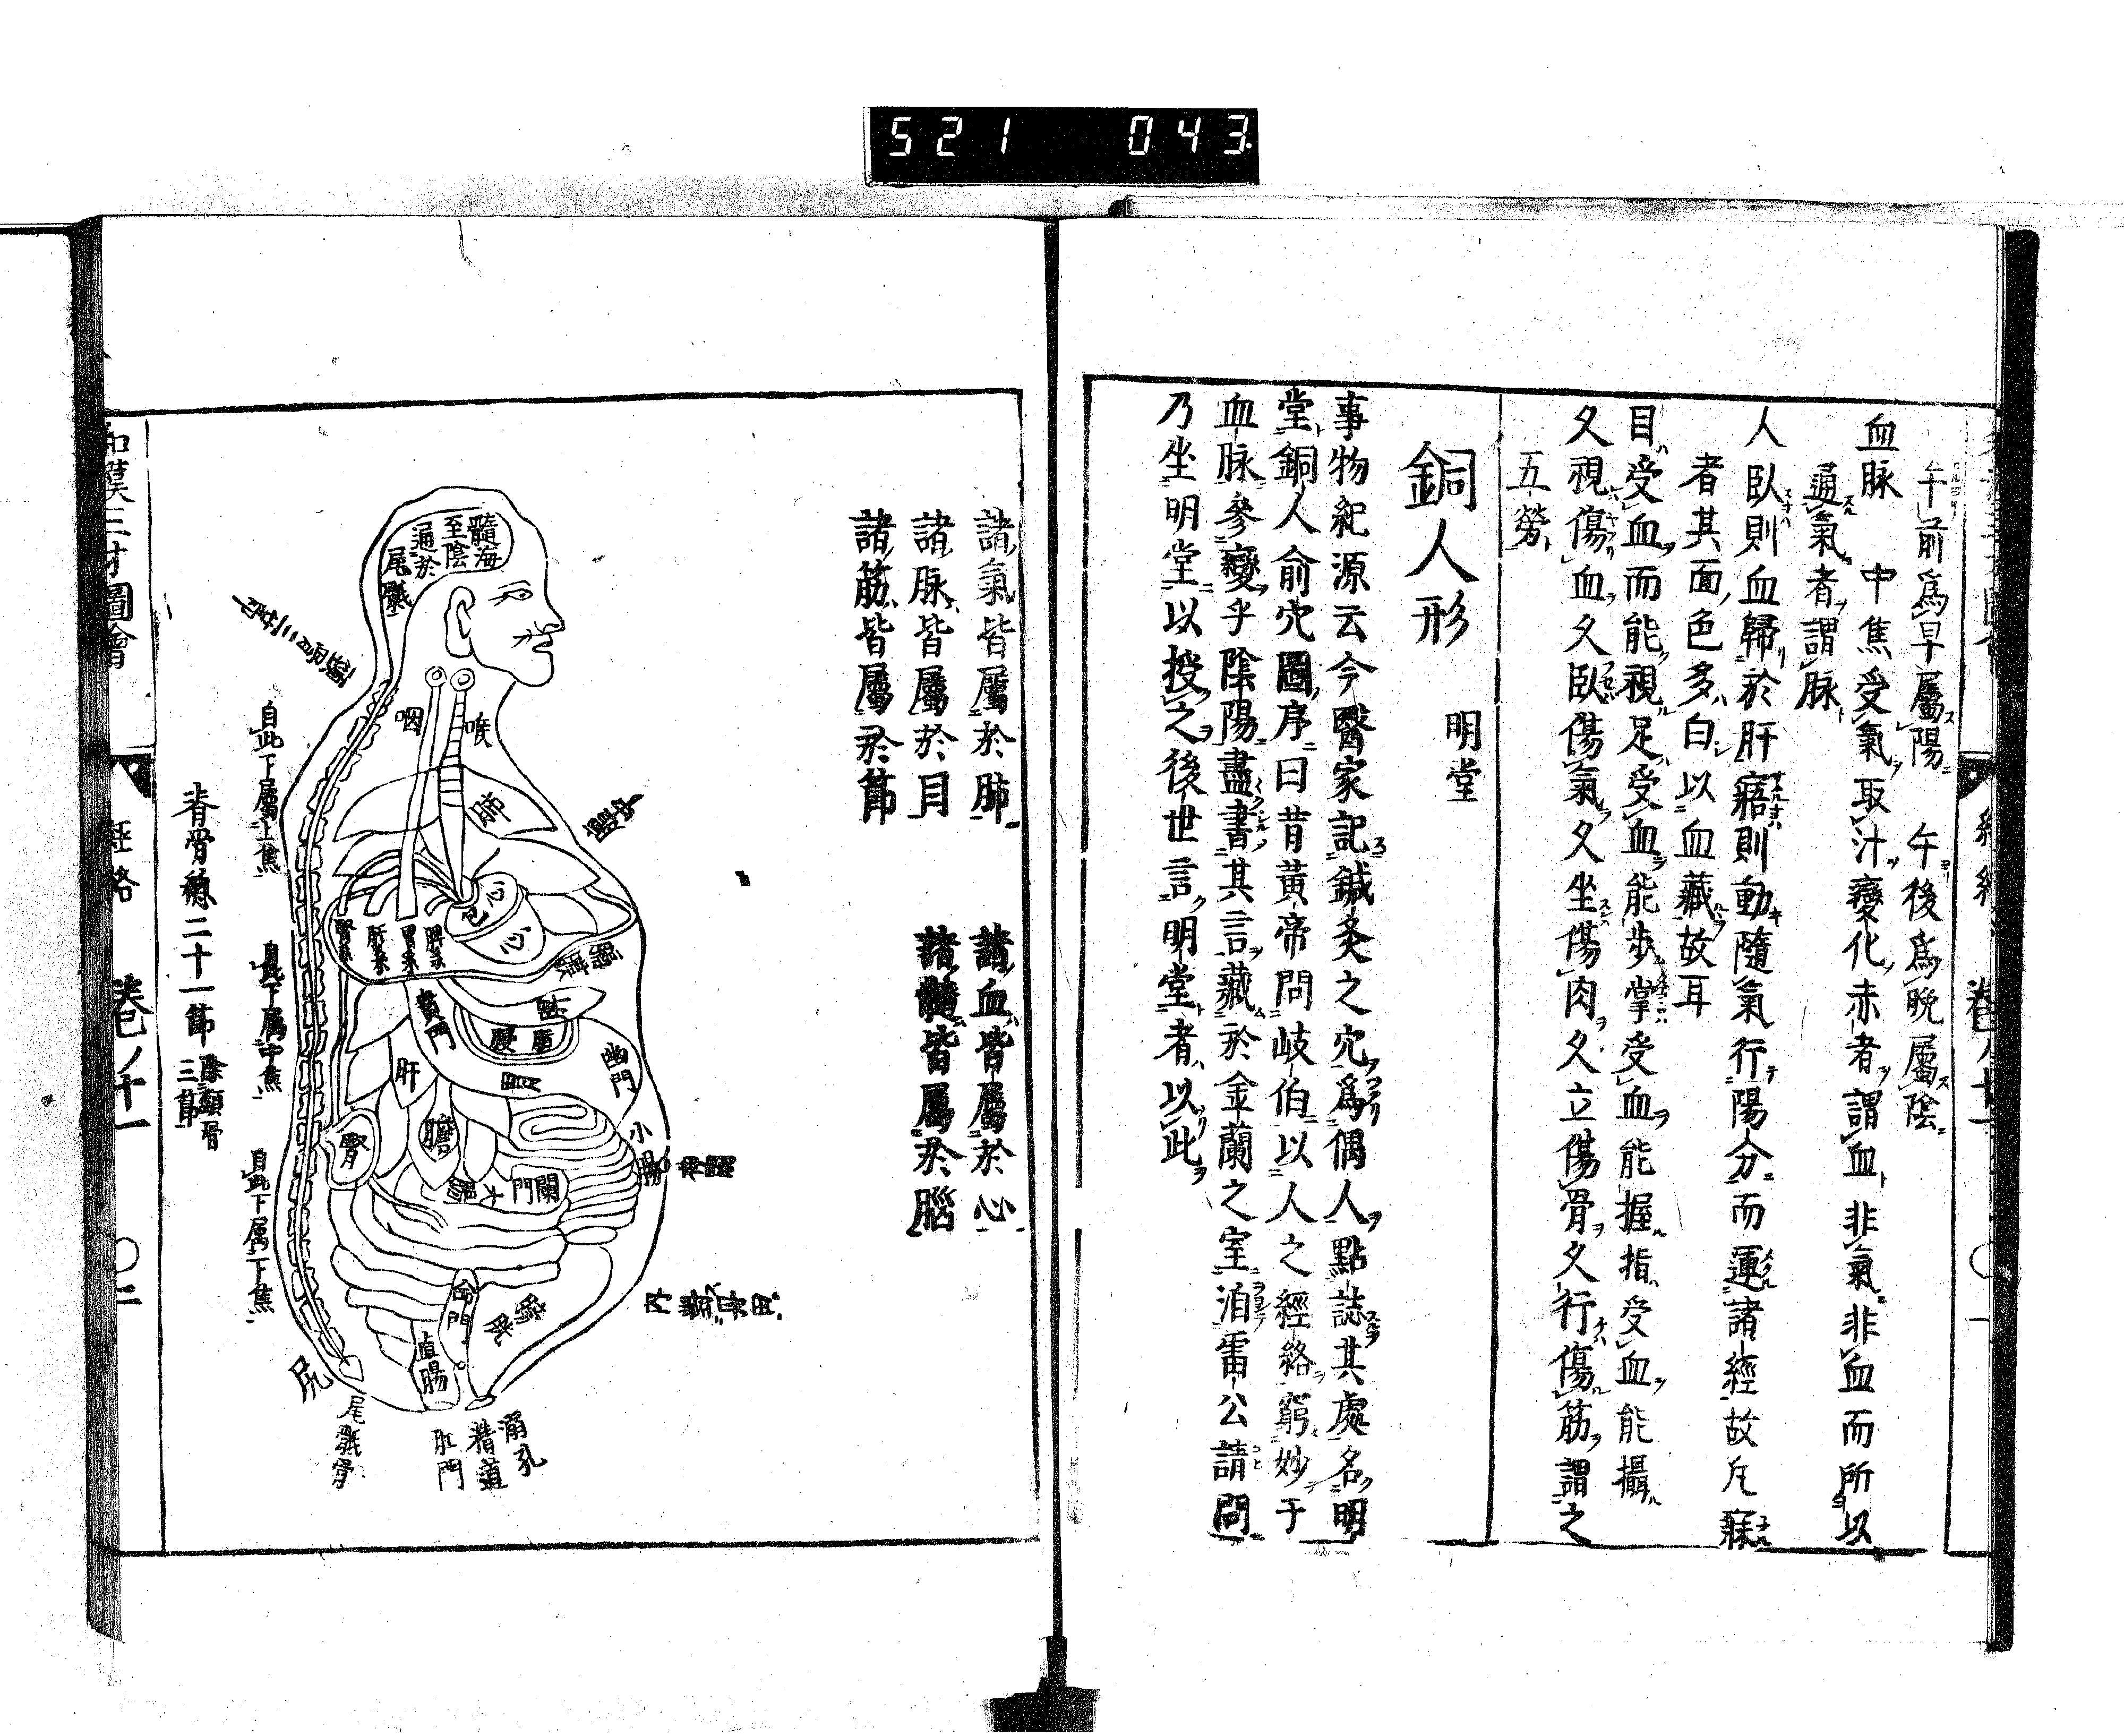 521 043
午前爲早屬陽 午後爲晩屬陰
血脉 中焦受氣取汁變化赤者謂血非氣非血而所以
通氣者謂脉
人臥則血歸於肝寤則動隨氣行陽分而運諸經故凡寐
者其面色多白以血藏故耳
目受血而能視足受血能步掌受血能握指受血能攝
久視傷血久臥傷氣久坐傷肉久立傷骨久行傷筋謂之
五勞
銅人形 明堂
事物紀源云今醫家記鍼灸之穴爲偶人點誌其處名明
堂銅人俞穴圖序曰昔黄帝問岐伯以人之經絡窮妙于
血脉參變乎陰陽盡書其言藏於金蘭之室洎雷公請問
乃坐明堂以授之後世言明堂者以此
諸氣皆屬於肺 諸血皆屬於心
諸脉皆屬於目 諸髓皆屬於腦
諸筋皆屬於節
髓海
至陰
通於
尾骶
咽
喉
肺
心
包
心
腎系
肝系
胃系
脾系
賁門
幽門
肝
膽
腎
小腸
闌門
直腸
自此下屬上焦
自此下屬中焦
自此下屬下焦
脊骨總二十一節
除頸骨
三節
尻
尾骶骨
肛門
精道
溺孔
和漢三才圖會 經絡 卷ノ十一 〇二